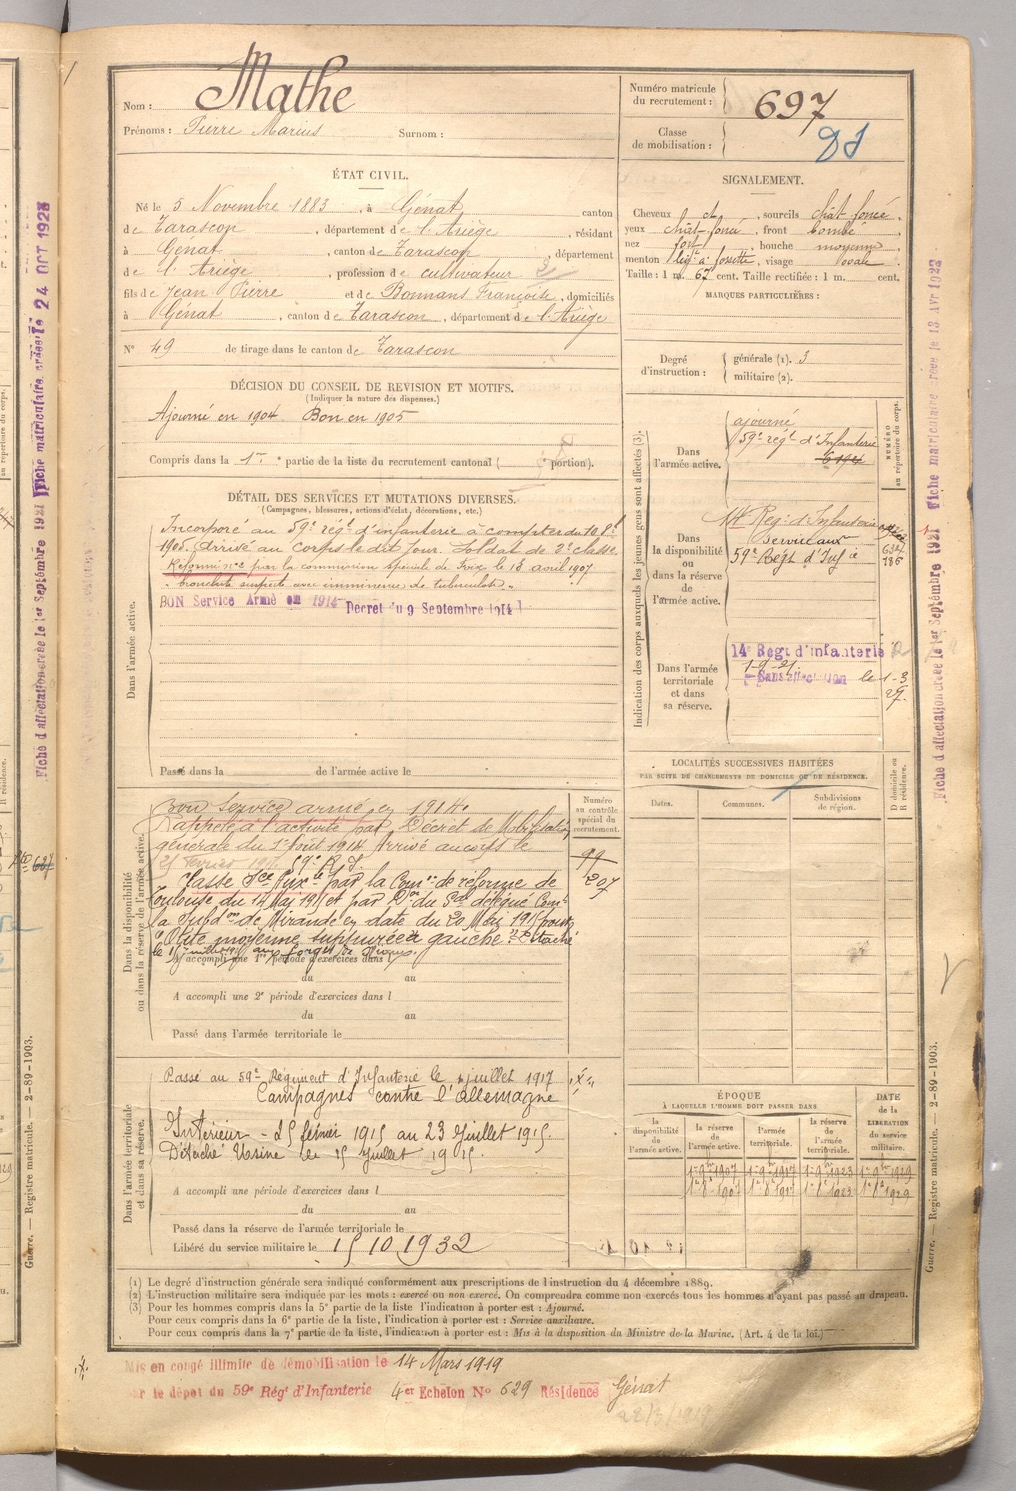 Nom : Mathe
Prénoms : Pierre Marius Surnom :
Numéro matricule du recrutement : 697
Classe de mobilisation :
ÉTAT CIVIL.
Né le 5 Novembre 1883, à Génat, canton
de Tarascon, département de l'Ariège, résidant
à Génat, canton de Tarascon, département
de l'Ariège, profession de cultivateur
fils de Jean Pierre et de Bonnans Françoise, domiciliés
à Génat, canton de Tarascon, département de l'Ariège
N° 49 de tirage dans le canton de Tarascon
SIGNALEMENT.
Cheveux ch, sourcils chât foncé,
yeux chât foncé, front bombé
nez fort, bouche moyenne
menton à fossette, visage ovale
Taille : 1 m. 67 cent. Taille rectifiée : 1 m. cent.
MARQUES PARTICULIÈRES :
Degré d'instruction : générale (1). 3
militaire (2).
DÉCISION DU CONSEIL DE REVISION ET MOTIFS.
(Indiquer la nature des dispenses.)
Ajourné en 1904 Bon en 1905
Compris dans la 1re partie de la liste du recrutement cantonal ( portion).
DÉTAIL DES SERVICES ET MUTATIONS DIVERSES.
(Campagnes, blessures, actions d'éclat, décorations, etc.)
Dans l'armée active.
Incorporé au 59e régt d'infanterie à compter du 10 8bre
1905, arrivé au corps le dit jour. Soldat de 2e classe
Réformé n°2 par la commission spéciale de Foix le 18 avril 1907
"bronchite suspecte avec imminence de tuberculose".
BON Service Armé en 1914 Decret du 9 Septembre 1914
Passé dans la de l'armée active le
Indication des corps auxquels les jeunes gens sont affectés (3).
NUMÉRO au répertoire du corps.
Dans l'armée active.
ajourné
59e régt d'Infanterie
Dans la disponibilité ou dans la réserve de l'armée active.
Reg. d'Infanterie
59e Régt d'Infie
634
786
Dans l'armée territoriale et dans sa réserve.
14e Regt d'Infanterie
1-9-21.
Sans affectation le 1-3
29.
LOCALITÉS SUCCESSIVES HABITÉES
PAR SUITE DE CHANGEMENTS DE DOMICILE OU DE RÉSIDENCE.
Dates. Communes. Subdivisions de région. D domicile ou R résidence.
Dans la disponibilité ou dans la réserve de l'armée active.
Numéro au contrôle spécial du recrutement.
99
207
Bon service armé en 1914.
Rappelé à l'activité par Décret de Mobilisation
générale du 1er Août 1914 Arrivé au corps le
25 février 1915 59e R.I.
Classé Sce Auxre par la Comon de réforme de
Toulouse du 14 Mai 1915 et par Don du Gal délégué Comt
la Subdon de Mirande en date du 20 Mai 1915 pour
"Otite moyenne suppurée à gauche" Détaché
le 15 juillet 1915 aux Forges de
A accompli une 1re période d'exercices dans l
du au
A accompli une 2e période d'exercices dans l
du au
Passé dans l'armée territoriale le
Dans l'armée territoriale et dans sa réserve.
Passé au 59e Régiment d'Infanterie le 1 juillet 1917
Campagnes contre l'Allemagne
Intérieur - 25 février 1915 au 23 Juillet 1915.
Détaché Usine le 15 Juillet 1915.
A accompli une période d'exercices dans l
du au
Passé dans la réserve de l'armée territoriale le
Libéré du service militaire le 15 10 1932
ÉPOQUE
À LAQUELLE L'HOMME DOIT PASSER DANS
la disponibilité de l'armée active. la réserve de l'armée active. l'armée territoriale. la réserve de l'armée territoriale. DATE de la LIBÉRATION du service militaire.
1er 9bre 1907 1er 9bre 1917 1er 9bre 1923 1er 9bre 1929
1er 8bre 1907 1er 8bre 1917 1er 8bre 1923 1er 8bre 1929
(1) Le degré d'instruction générale sera indiqué conformément aux prescriptions de l'instruction du 4 décembre 1889.
(2) L'instruction militaire sera indiquée par les mots : exercé ou non exercé. On comprendra comme non exercés tous les hommes n'ayant pas passé au drapeau.
(3) Pour les hommes compris dans la 5e partie de la liste l'indication à porter est : Ajourné.
Pour ceux compris dans la 6e partie de la liste, l'indication à porter est : Service auxiliaire.
Pour ceux compris dans la 7e partie de la liste, l'indication à porter est : Mis à la disposition du Ministre de la Marine. (Art. 4 de la loi.)
Mis en congé illimité de démobilisation le 14 Mars 1919
par le dépôt du 59e Régt d'Infanterie 4er Echelon N° 629 Résidence Génat
22/3/1919
Guerre. — Registre matricule. — 2-89-1903.
Guerre. — Registre matricule. — 2-89-1903.
Fiche d'affectation créée le 1er Septembre 1921 Fiche matriculaire créée le 24 OCT 1923
Fiche d'affectation créée le 1er Septembre 1921 Fiche matriculaire créée le 13 Avr 1923